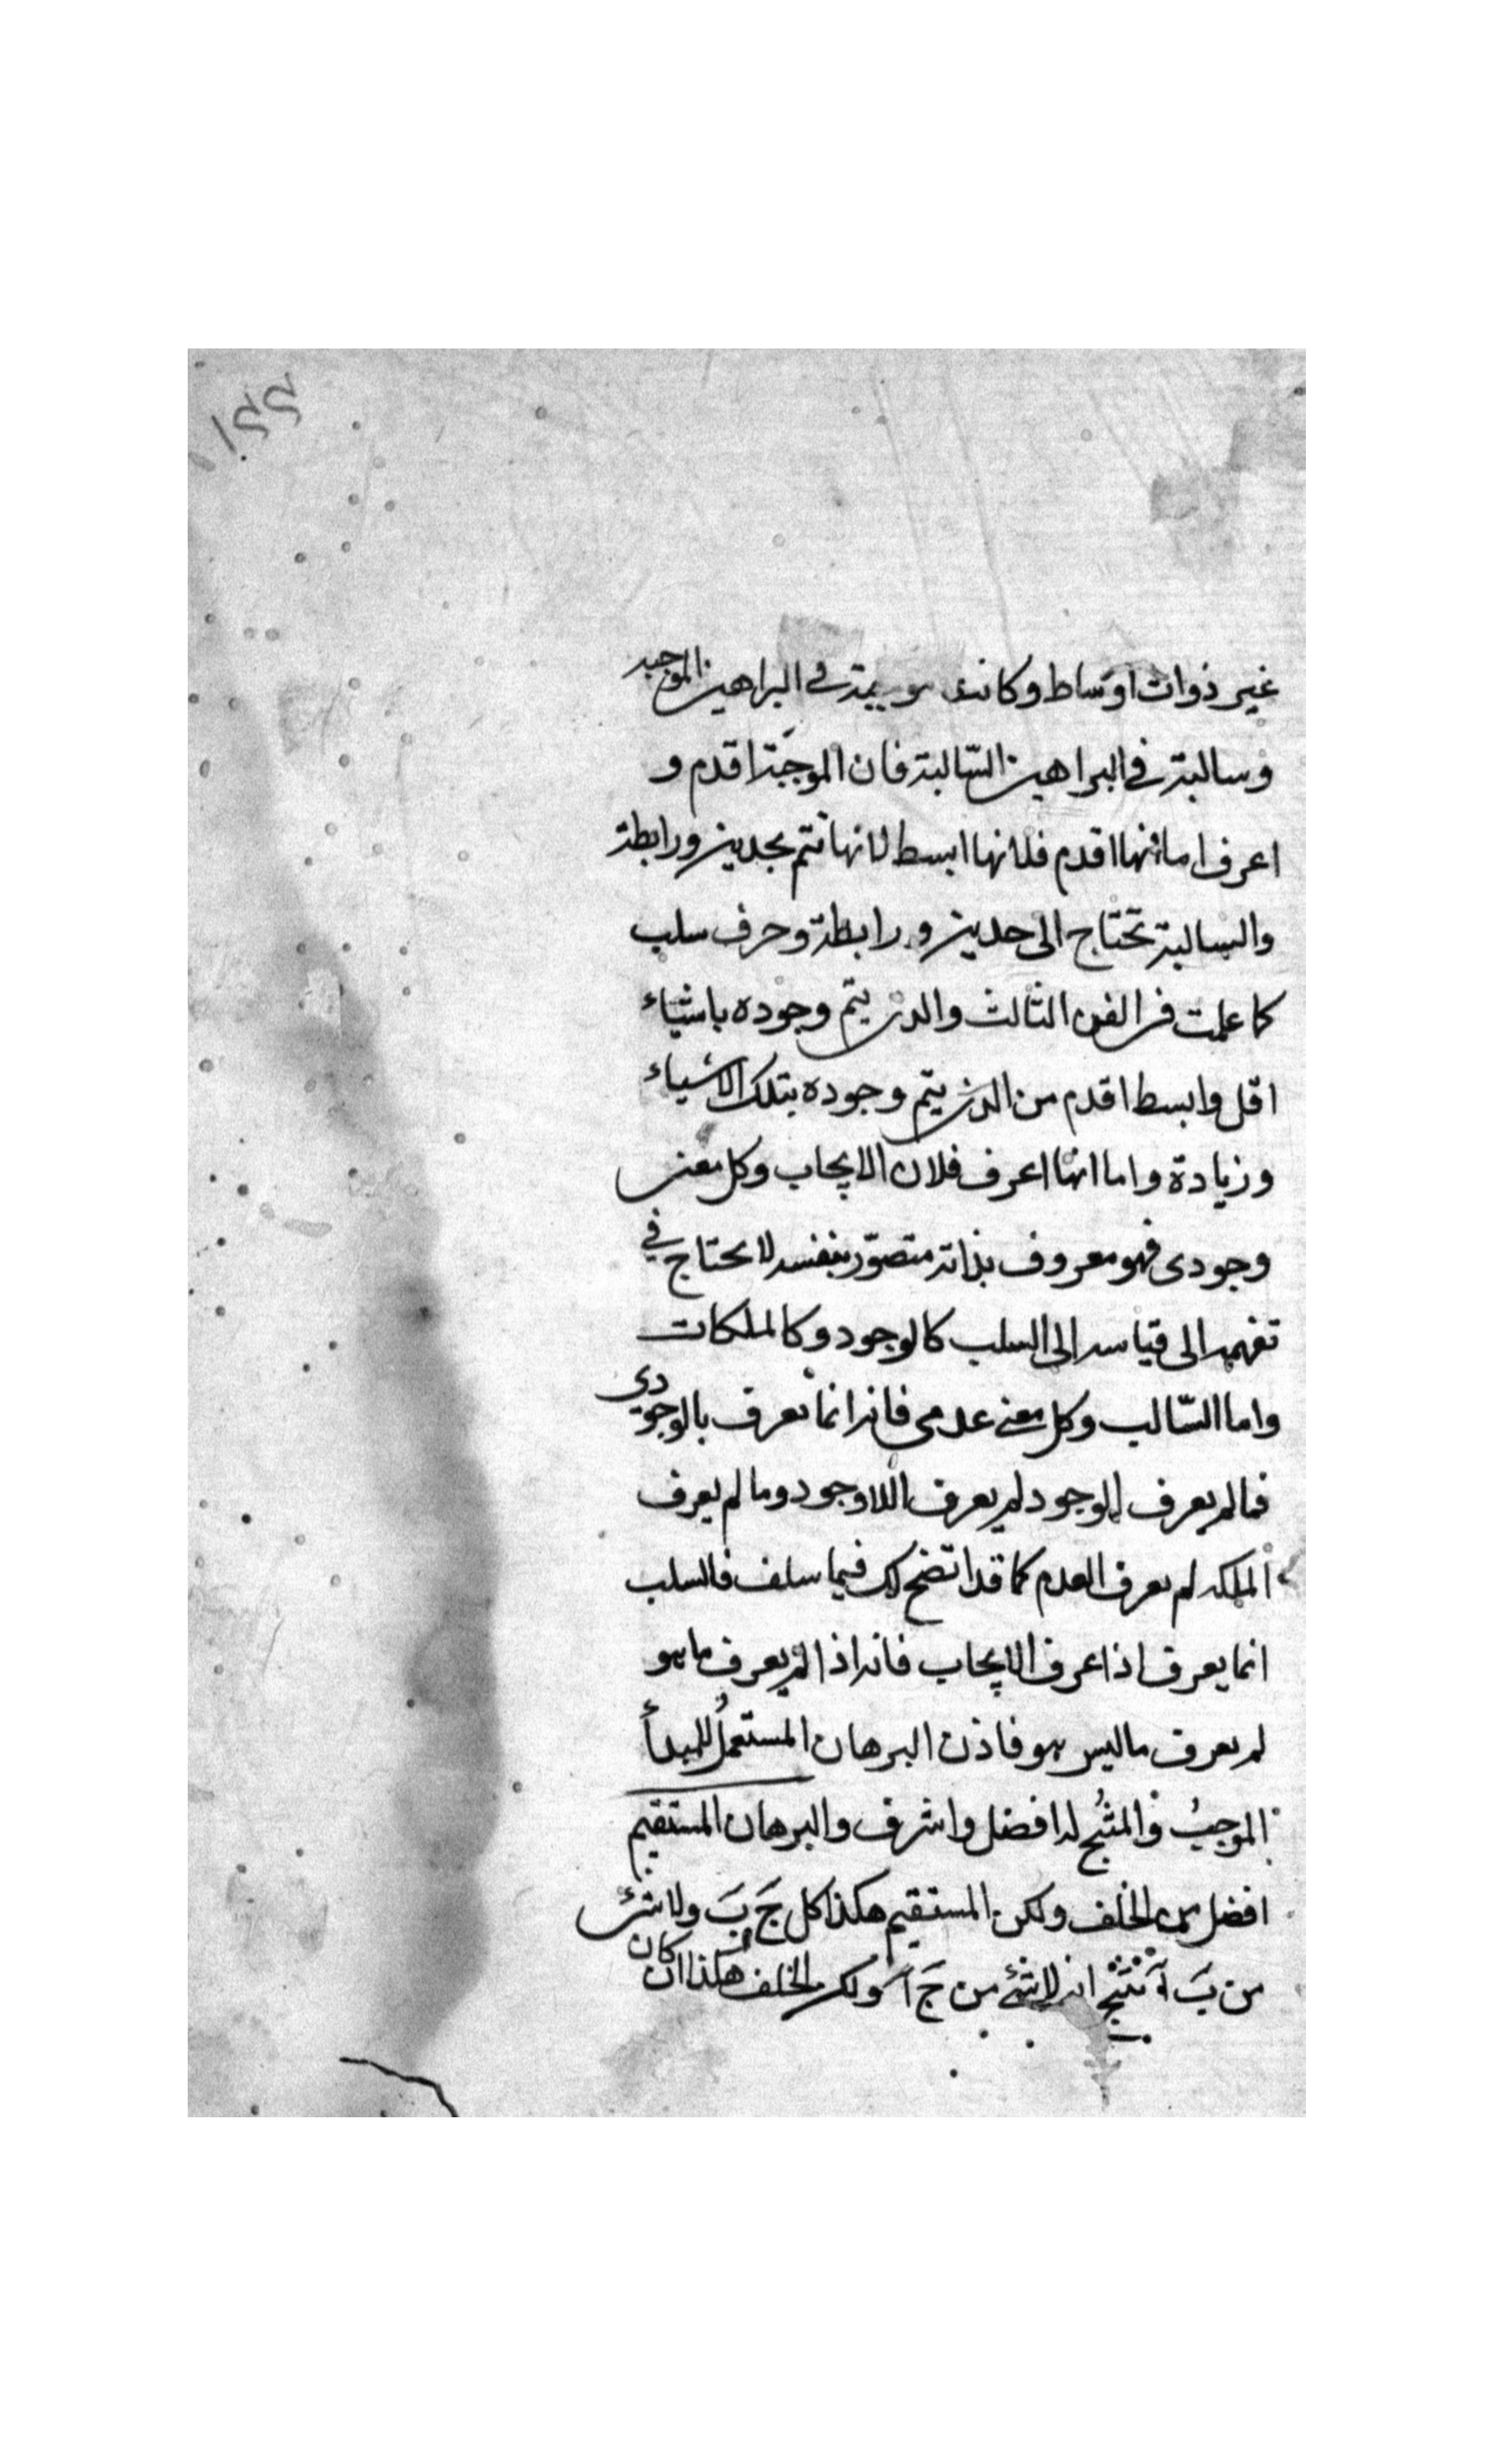 غير ذوات اوساط وكانت موجبة في البراهين الموجبه
وسالبة في البراهين السّالبة فان الموجَبة اقدم و
اعرف اما انها اقدم فلانها ابسط لانها تتم بحدين ورابطة
والسالبة تحتاج الى حدين ورابطة وحرف سلب
كما علمت في الفن الثالث والذى يتم وجوده باشياء
اقل وابسط اقدم من الذى يتم وجوده بتلك الاشياء
وزيادة واما انها اعرف فلان الايجاب وكل معنى
وجودى فهو معروف بذاته متصوّر بنفسه لا يحتاج في
تفهمه الى قياسه الى السلب كالوجود وكالملكات
واما السّالب وكل معنى عدمى فانه انما يعرف بالوجودى
فما لم يعرف الوجود لم يعرف اللاوجود وما لم يعرف
الملكه لم يعرف العدم كما قد اتضح لك فيما سلف فالسلب
انما يعرف اذا عرف الايجاب فانه اذا لم يعرف ما هو
لم يعرف ما ليس هو فاذن البرهان المستعملُ للمبدأ
الموجبُ والمنتُج له افضل واشرف والبرهان المستقيم
افضل من الخلف ولكن المستقيم هكذا كل جَ بَ ولا شئ
من بَ آ ينتج انه لا شئ من جَ آ وليكن الخلف هكذا ان كان